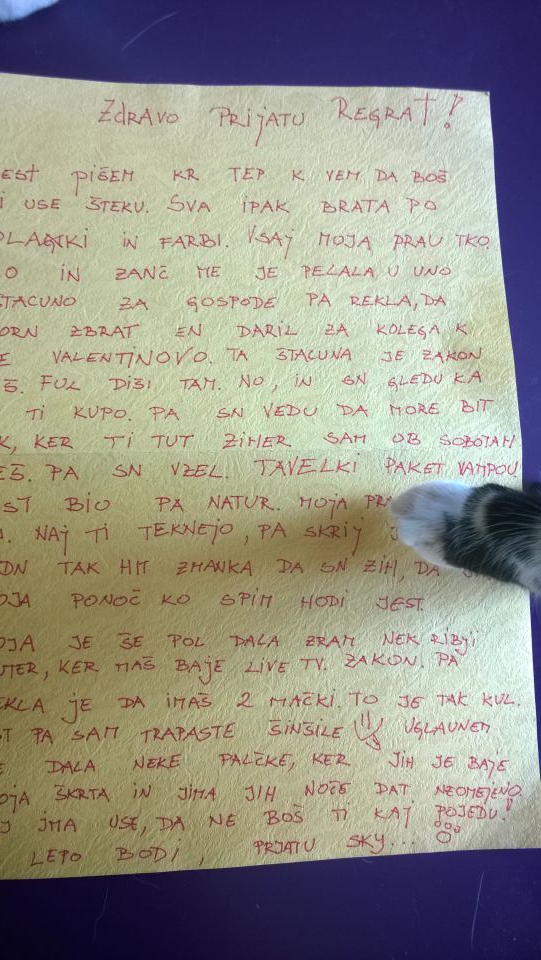 Zdravo prijatu Regrat!
EST PIŠEM KR TEP K VEM DA BOŠ
I USE ŠTEKU. SVA IPAK BRATA PO
IN FARBI. VSAJ MOJA PRAU TKO.
O IN ZANČ ME JE PELALA U UNO
ŠTACUNO ZA GOSPODE PA REKLA, DA
ZBRAT EN DARIL ZA KOLEGA K
E VALENTINOVO. TA ŠTACUNA JE ZAKON
Š. FUL DIŠI TAM. NO, IN SN GLEDU KA
TI KUPO. PA SN VEDU DA MORE BIT
K, KER TI TUT ZIHER SAM OB SOBOTAH
EŠ. PA SN VZEL. TAVELKI PAKET VAMPOU
ST BIO PA NATUR. MOJA
. NAJ TI TEKNEJO, PA SKRIJ
DN TAK HIT ZMANKA DA SN ZIH, DA
OJA PONOČ KO SPIM HODI JEST.
OJA JE ŠE POL DALA ZRAM NEK RIBJI
UTER, KER MAŠ BAJE LIVE TV. ZAKON. PA
EKLA JE DA IMAŠ 2 MAČKI. TO JE TAK KUL.
ST PA SAM TRAPASTE ŠINŠILE UGLAUNEM
E DALA NEKE PALČKE, KER JIH JE BAJE
OJA ŠKRTA IN JIMA JIH NOČE DAT NEOMEJENO.
J JMA USE, DA NE BOŠ TI KAJ POJEDU!
LEPO BODI, PRJATU SKY...